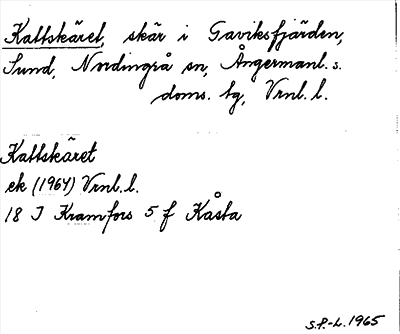 Kattskäret, skär i Gaviksfjärden,
Sund, Nordingrå sn, Ångermanl. s.
doms. tg, Vrnl. l.
Kattskäret
ek (1964) Vrnl. l.
18 I Kramfors 5 f Kåsta
S.P.-L. 1965